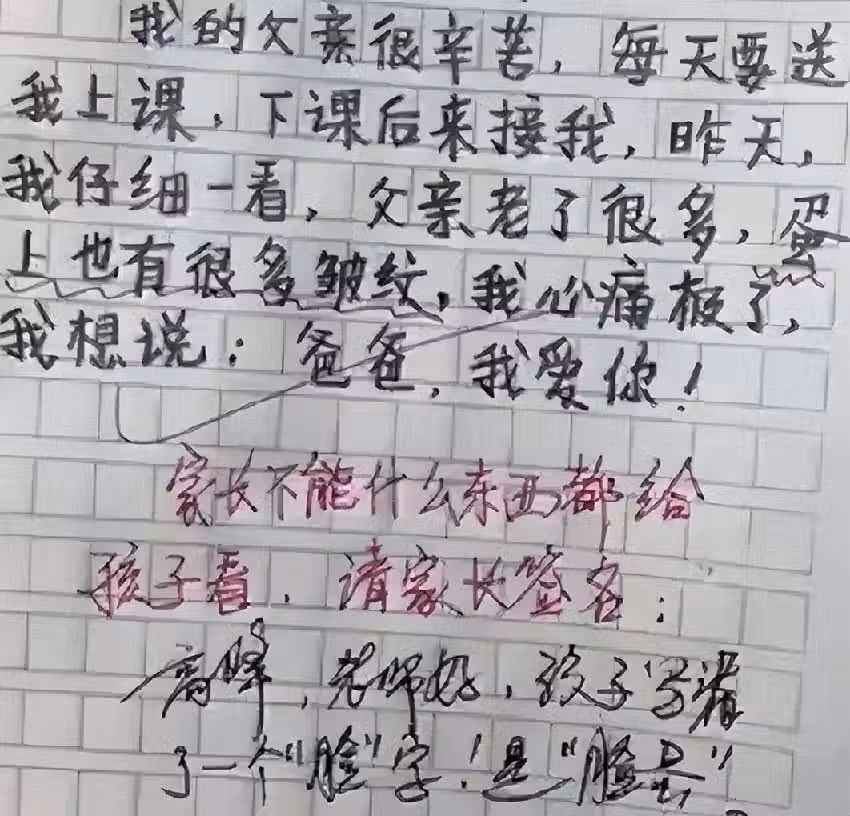 我的父亲很辛苦，每天要送
我上课，下课后来接我，昨天，
我仔细一看，父亲老了很多，蛋
上也有很多皱纹，我心痛极了，
我想说：爸爸，我爱你！
家长不能什么东西都给
孩子看，请家长签名：
高峰，老师好，孩子写错
了一个"脸"字！是"脸蛋"